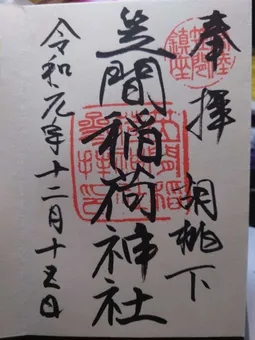 奉拝 胡桃下
笠間稲荷神社
令和元年十二月十五日